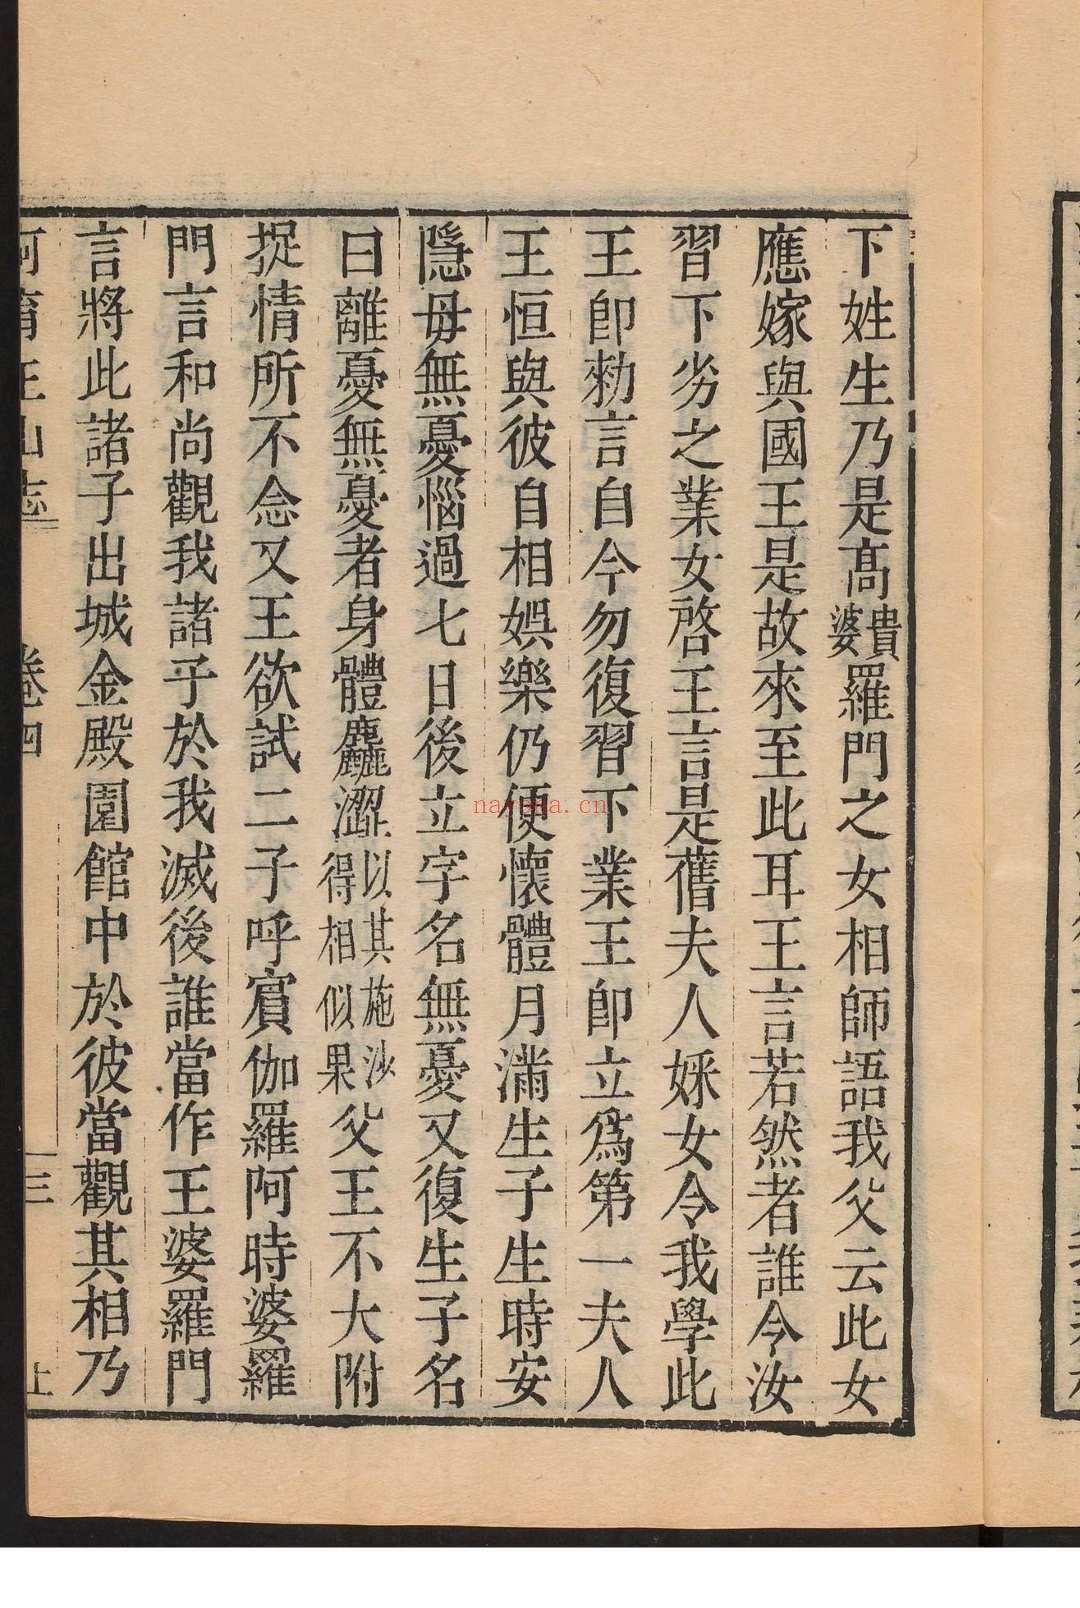 下姓生乃是髙貴婆羅門之女相師語我父云此女
應嫁與國王是故來至此耳王言若然者誰令汝
習下劣之業女啓王言是舊夫人婇女令我學此
王卽勅言自今勿復習下業王卽立爲第一夫人
王恒與彼自相娛樂仍便懷體月滿生子生時安
隱母無憂惱過七日後立字名無憂又復生子名
曰離憂無憂者身體麤澀以其施沙得相似果父王不大附
捉情所不念又王欲試二子呼賔伽羅阿時婆羅
門言和尚觀我諸子於我滅後誰當作王婆羅門
言將此諸子出城金殿園館中於彼當觀其相乃
阿育王山志 卷四 三 上
nayona.cn